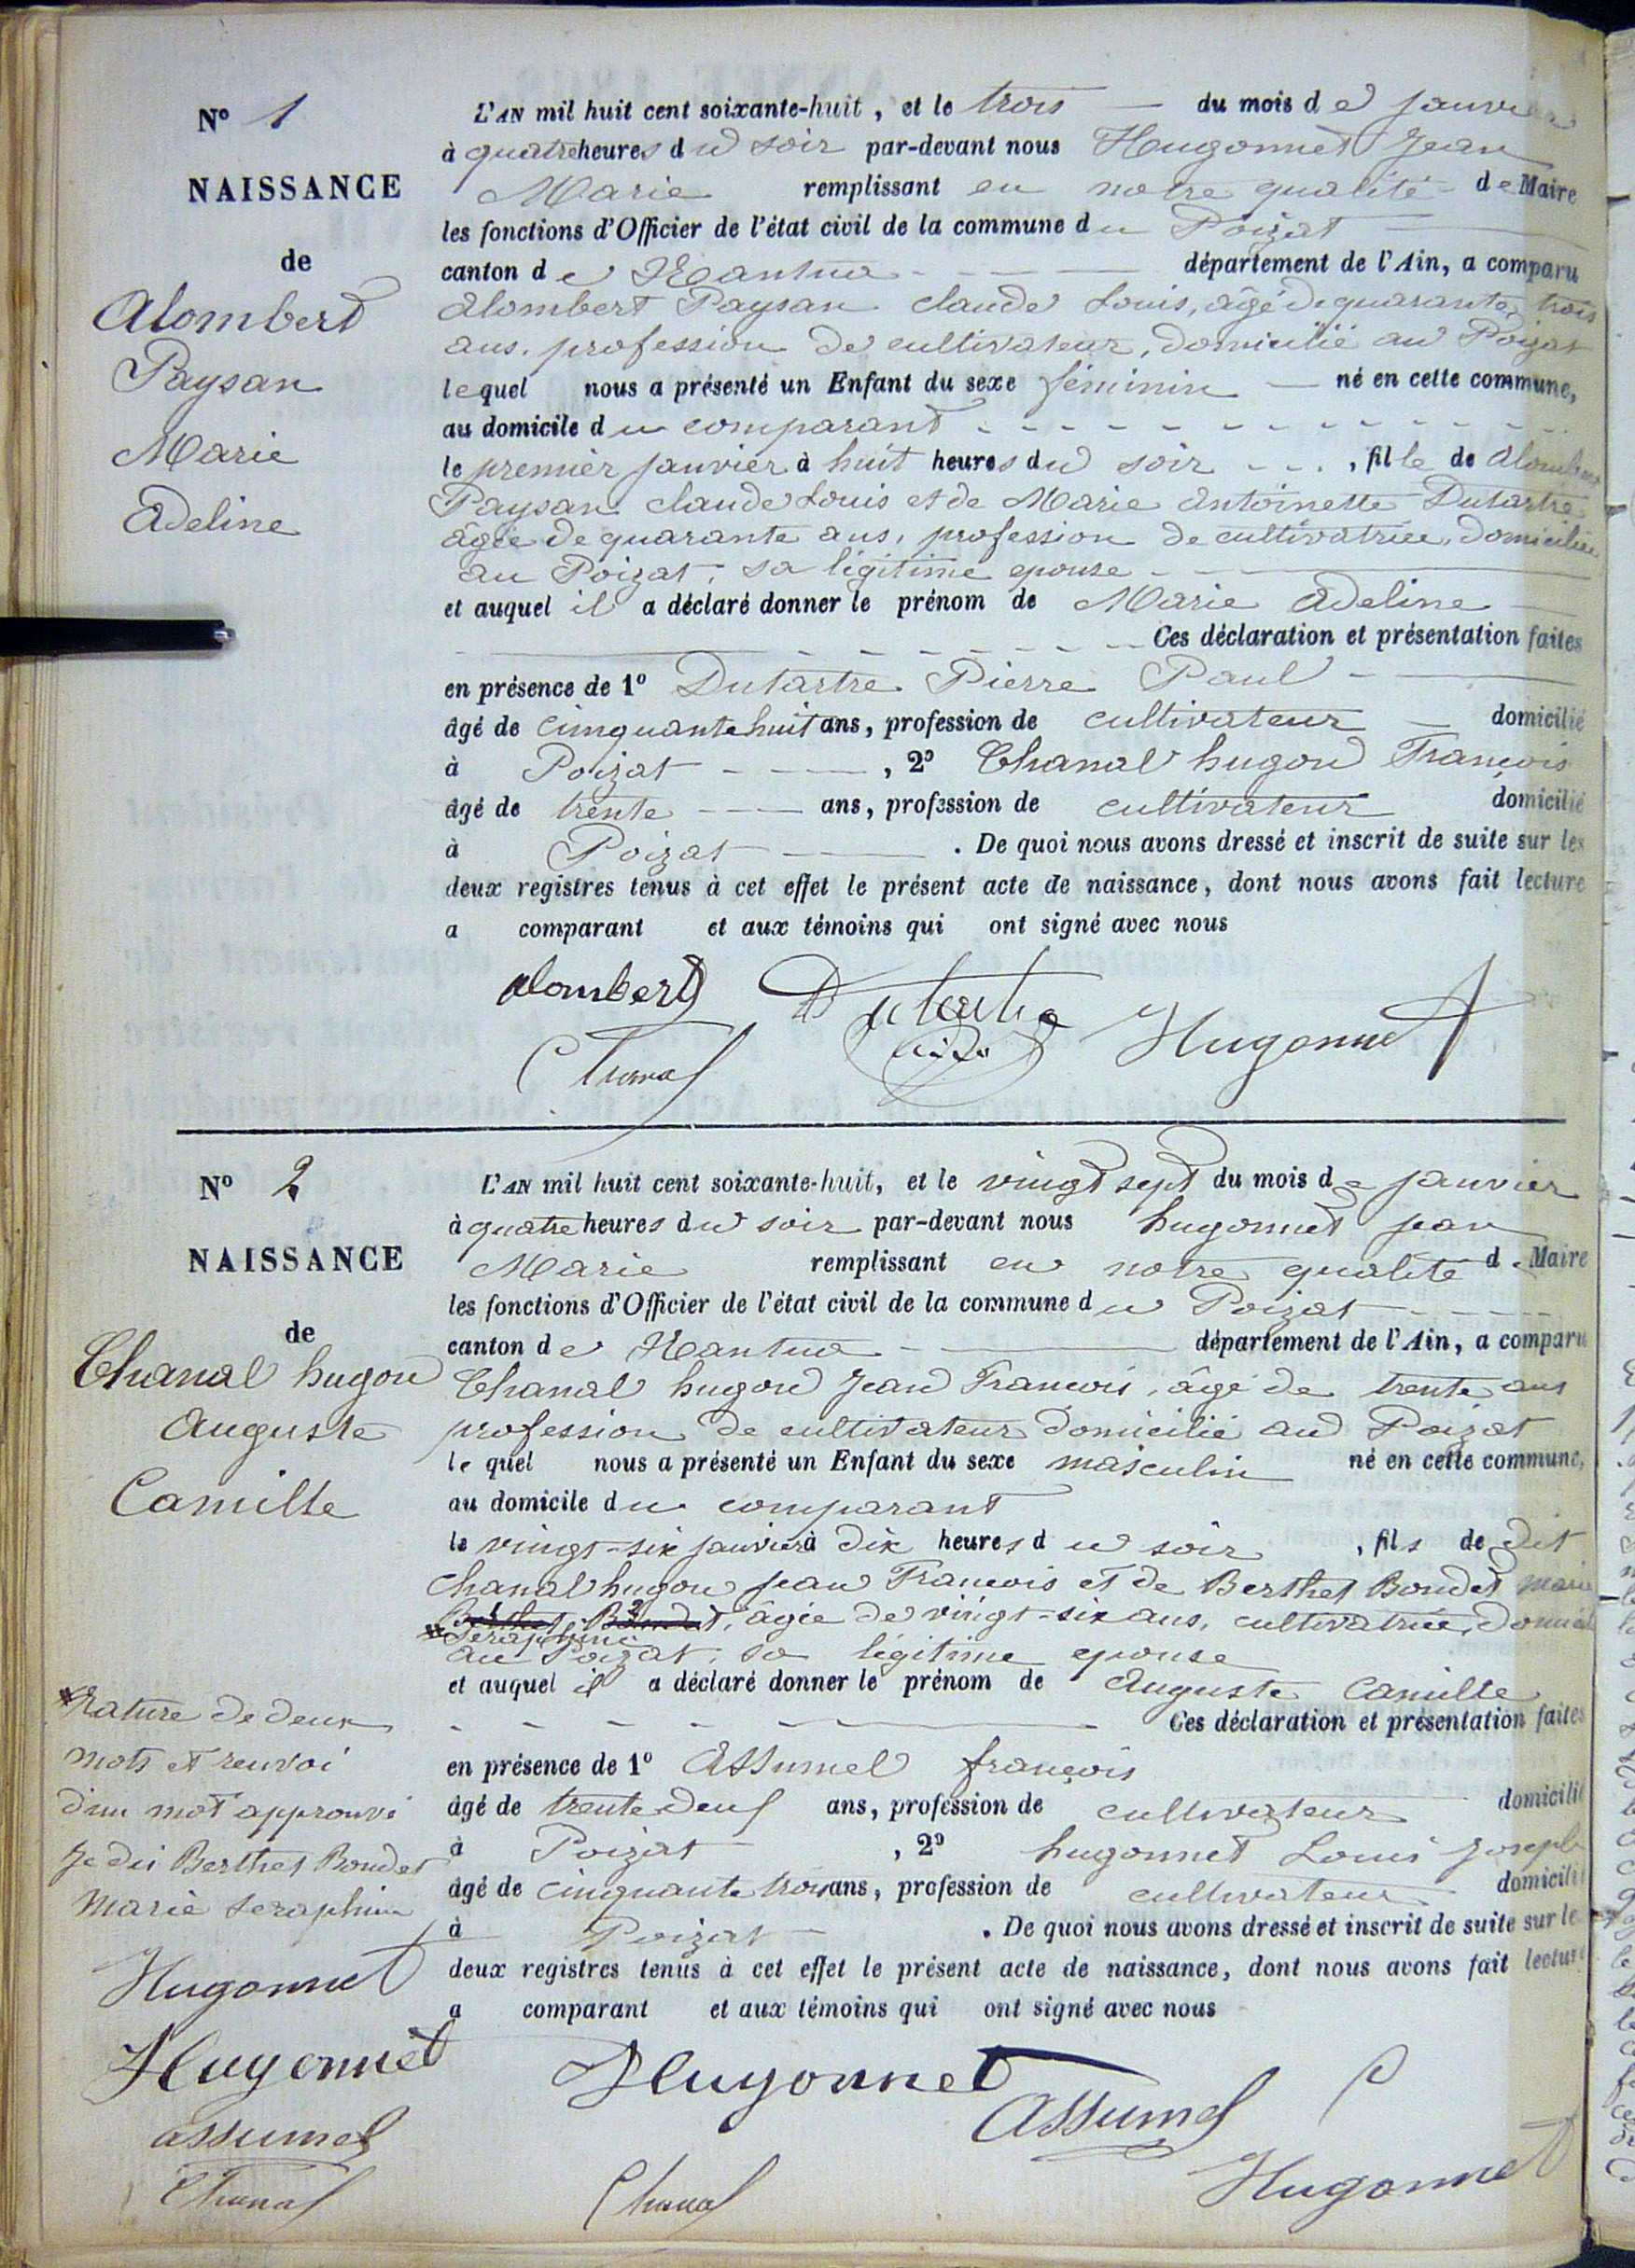 N° 1
NAISSANCE
de
Alombert
Paysan
Marie
Adeline
L'AN mil huit cent soixante-huit, et le trois du mois de janvier
à quatre heures du soir par-devant nous Hugonnet Jean
Marie remplissant en notre qualité de Maire
les fonctions d'Officier de l'état civil de la commune du Poizat
canton de Nantua département de l'Ain, a comparu
Alombert Paysan Claude Louis, âgé de quarante trois
ans, profession de cultivateur, domicilié au Poizat
lequel nous a présenté un Enfant du sexe féminin né en cette commune,
au domicile du comparant
le premier janvier à huit heures du soir, fille de Alombert
Paysan Claude Louis et de Marie Antoinette Dutartre
âgée de quarante ans, profession de cultivatrice, domiciliée
au Poizat, sa légitime epouse
et auquel il a déclaré donner le prénom de Marie Adeline
Ces déclaration et présentation faites
en présence de 1° Dutartre Pierre Paul
âgé de cinquante huit ans, profession de cultivateur domicilié
à Poizat, 2° Chanal hugon François
âgé de trente ans, profession de cultivateur domicilié
à Poizat. De quoi nous avons dressé et inscrit de suite sur les
deux registres tenus à cet effet le présent acte de naissance, dont nous avons fait lecture
a comparant et aux témoins qui ont signé avec nous
alombert Dutartre Hugonnet
Chanal
N° 2
NAISSANCE
de
Chanal hugon
Auguste
Camille
L'AN mil huit cent soixante-huit, et le vingt sept du mois de janvier
à quatre heures du soir par-devant nous hugonnet jean
Marie remplissant en notre qualité d Maire
les fonctions d'Officier de l'état civil de la commune du Poizat
canton de Nantua département de l'Ain, a comparu
Chanal hugon Jean François, âgé de trente ans
profession de cultivateur domicilié au Poizat
le quel nous a présenté un Enfant du sexe masculin né en cette commune,
au domicile du comparant
le vingt-six janvier à dix heures du soir, fils de dit
Chanal hugon jean François et de Berthet Bondet marie
Berthet Bondet, âgée de vingt-six ans, cultivatrice, domicil
Seraphine
au Poizat, sa légitime epouse
et auquel il a déclaré donner le prénom de Auguste Camille
Ces déclaration et présentation faites
en présence de 1° Assumel françois
âgé de trente deux ans, profession de cultivateur domicilié
à Poizat, 2° hugonnet Louis Joseph
âgé de cinquante trois ans, profession de cultivateur domicilié
à Poizat. De quoi nous avons dressé et inscrit de suite sur le
deux registres tenus à cet effet le présent acte de naissance, dont nous avons fait lecture
a comparant et aux témoins qui ont signé avec nous
Rature de deux
mots et renvoi
d'un mot approuvé
Je dis Berthet Bondet
Marie seraphine
Hugonnet
Hugonnet
assumel
Chanal
Hugonnet
Assumel
Chanal
Hugonnet